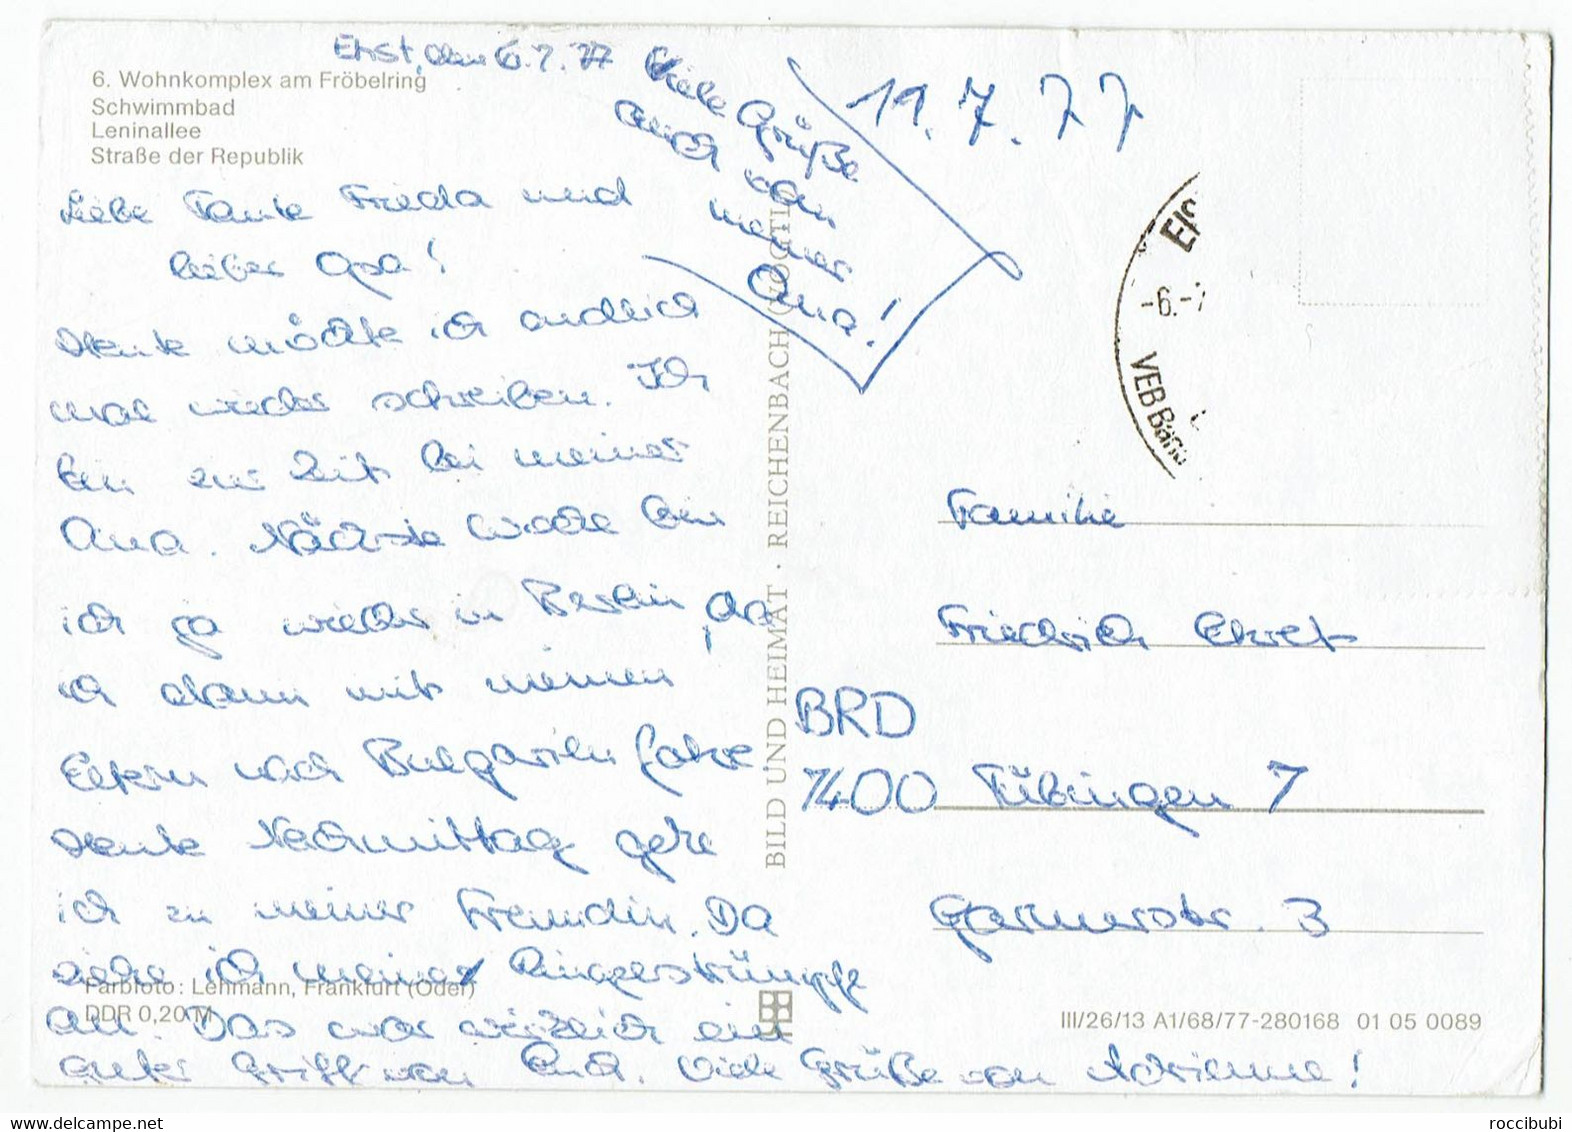 Ehst, den 6.7.77
6. Wohnkomplex am Fröbelring
Schwimmbad
Leninallee
Straße der Republik
Liebe Tante Frieda und
lieber Opa!
Heute möchte ich endlich
mal wieder schreiben. Ich
bin zur Zeit bei meiner
Oma. Nächste Woche bin
ich ja wieder in Berlin, da
ich dann mit meinen
Eltern nach Bulgarien fahre
Heute Nachmittag gehe
ich zu meiner Freundin. Da
ziehe ich meine Ringelstrümpfe
an. Das war wirklich ein
guter Griff von Euch. Viele Grüße von Adrienne!
Farbfoto: Lehmann, Frankfurt (Oder)
DDR 0,20 M
Viele Grüße
auch von
meiner
Oma!
BILD UND HEIMAT · REICHENBACH (VOGTL
11.7.77
EIS
-6.-7
VEB Band
Familie
Friedrich Ehret
BRD
7400 Tübingen 7
Garnerstr. 3
III/26/13 A1/68/77-280168 01 05 0089
roccibubi